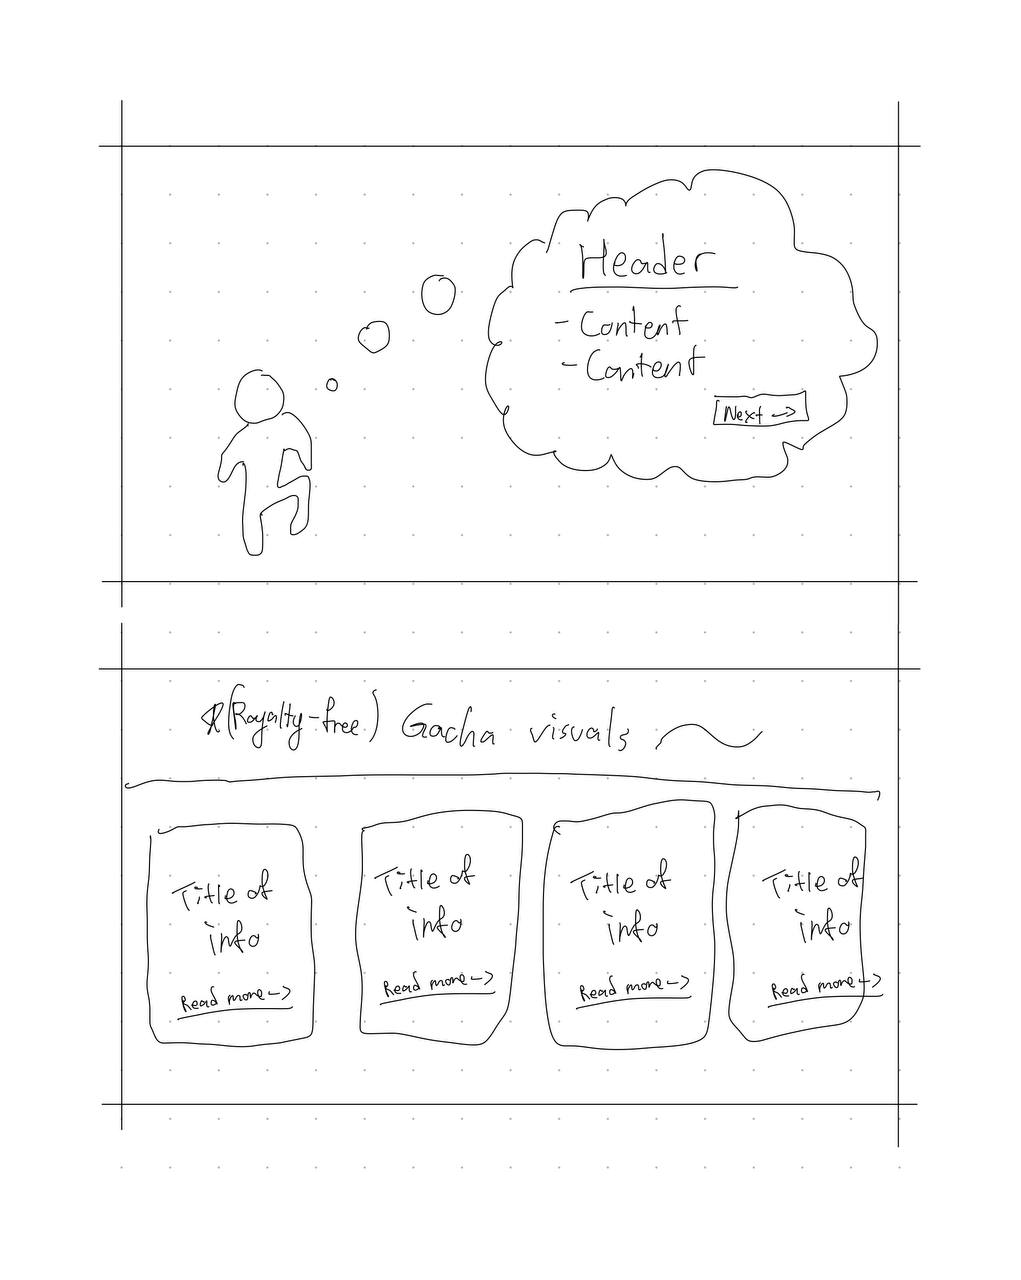 Header
- Content
- Content
Next →
(Royalty-free) Gacha visuals
Title of
info
Read more →
Title of
info
Read more →
Title of
info
Read more →
Title of
info
Read more →